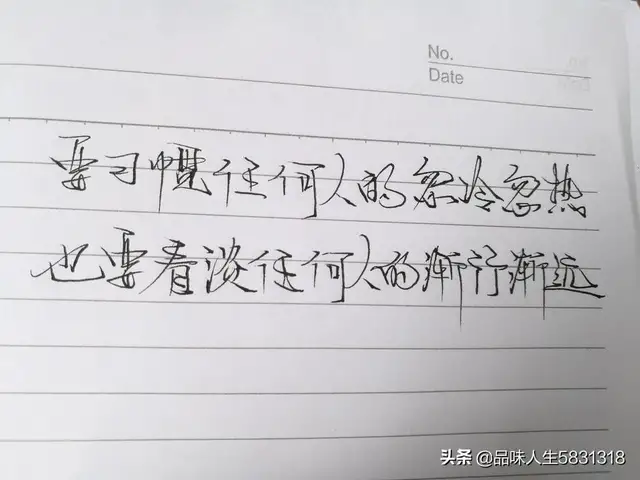 No.
Date
要习惯任何人的忽冷忽热
也要看淡任何人的渐行渐远
头条 @品味人生5831318